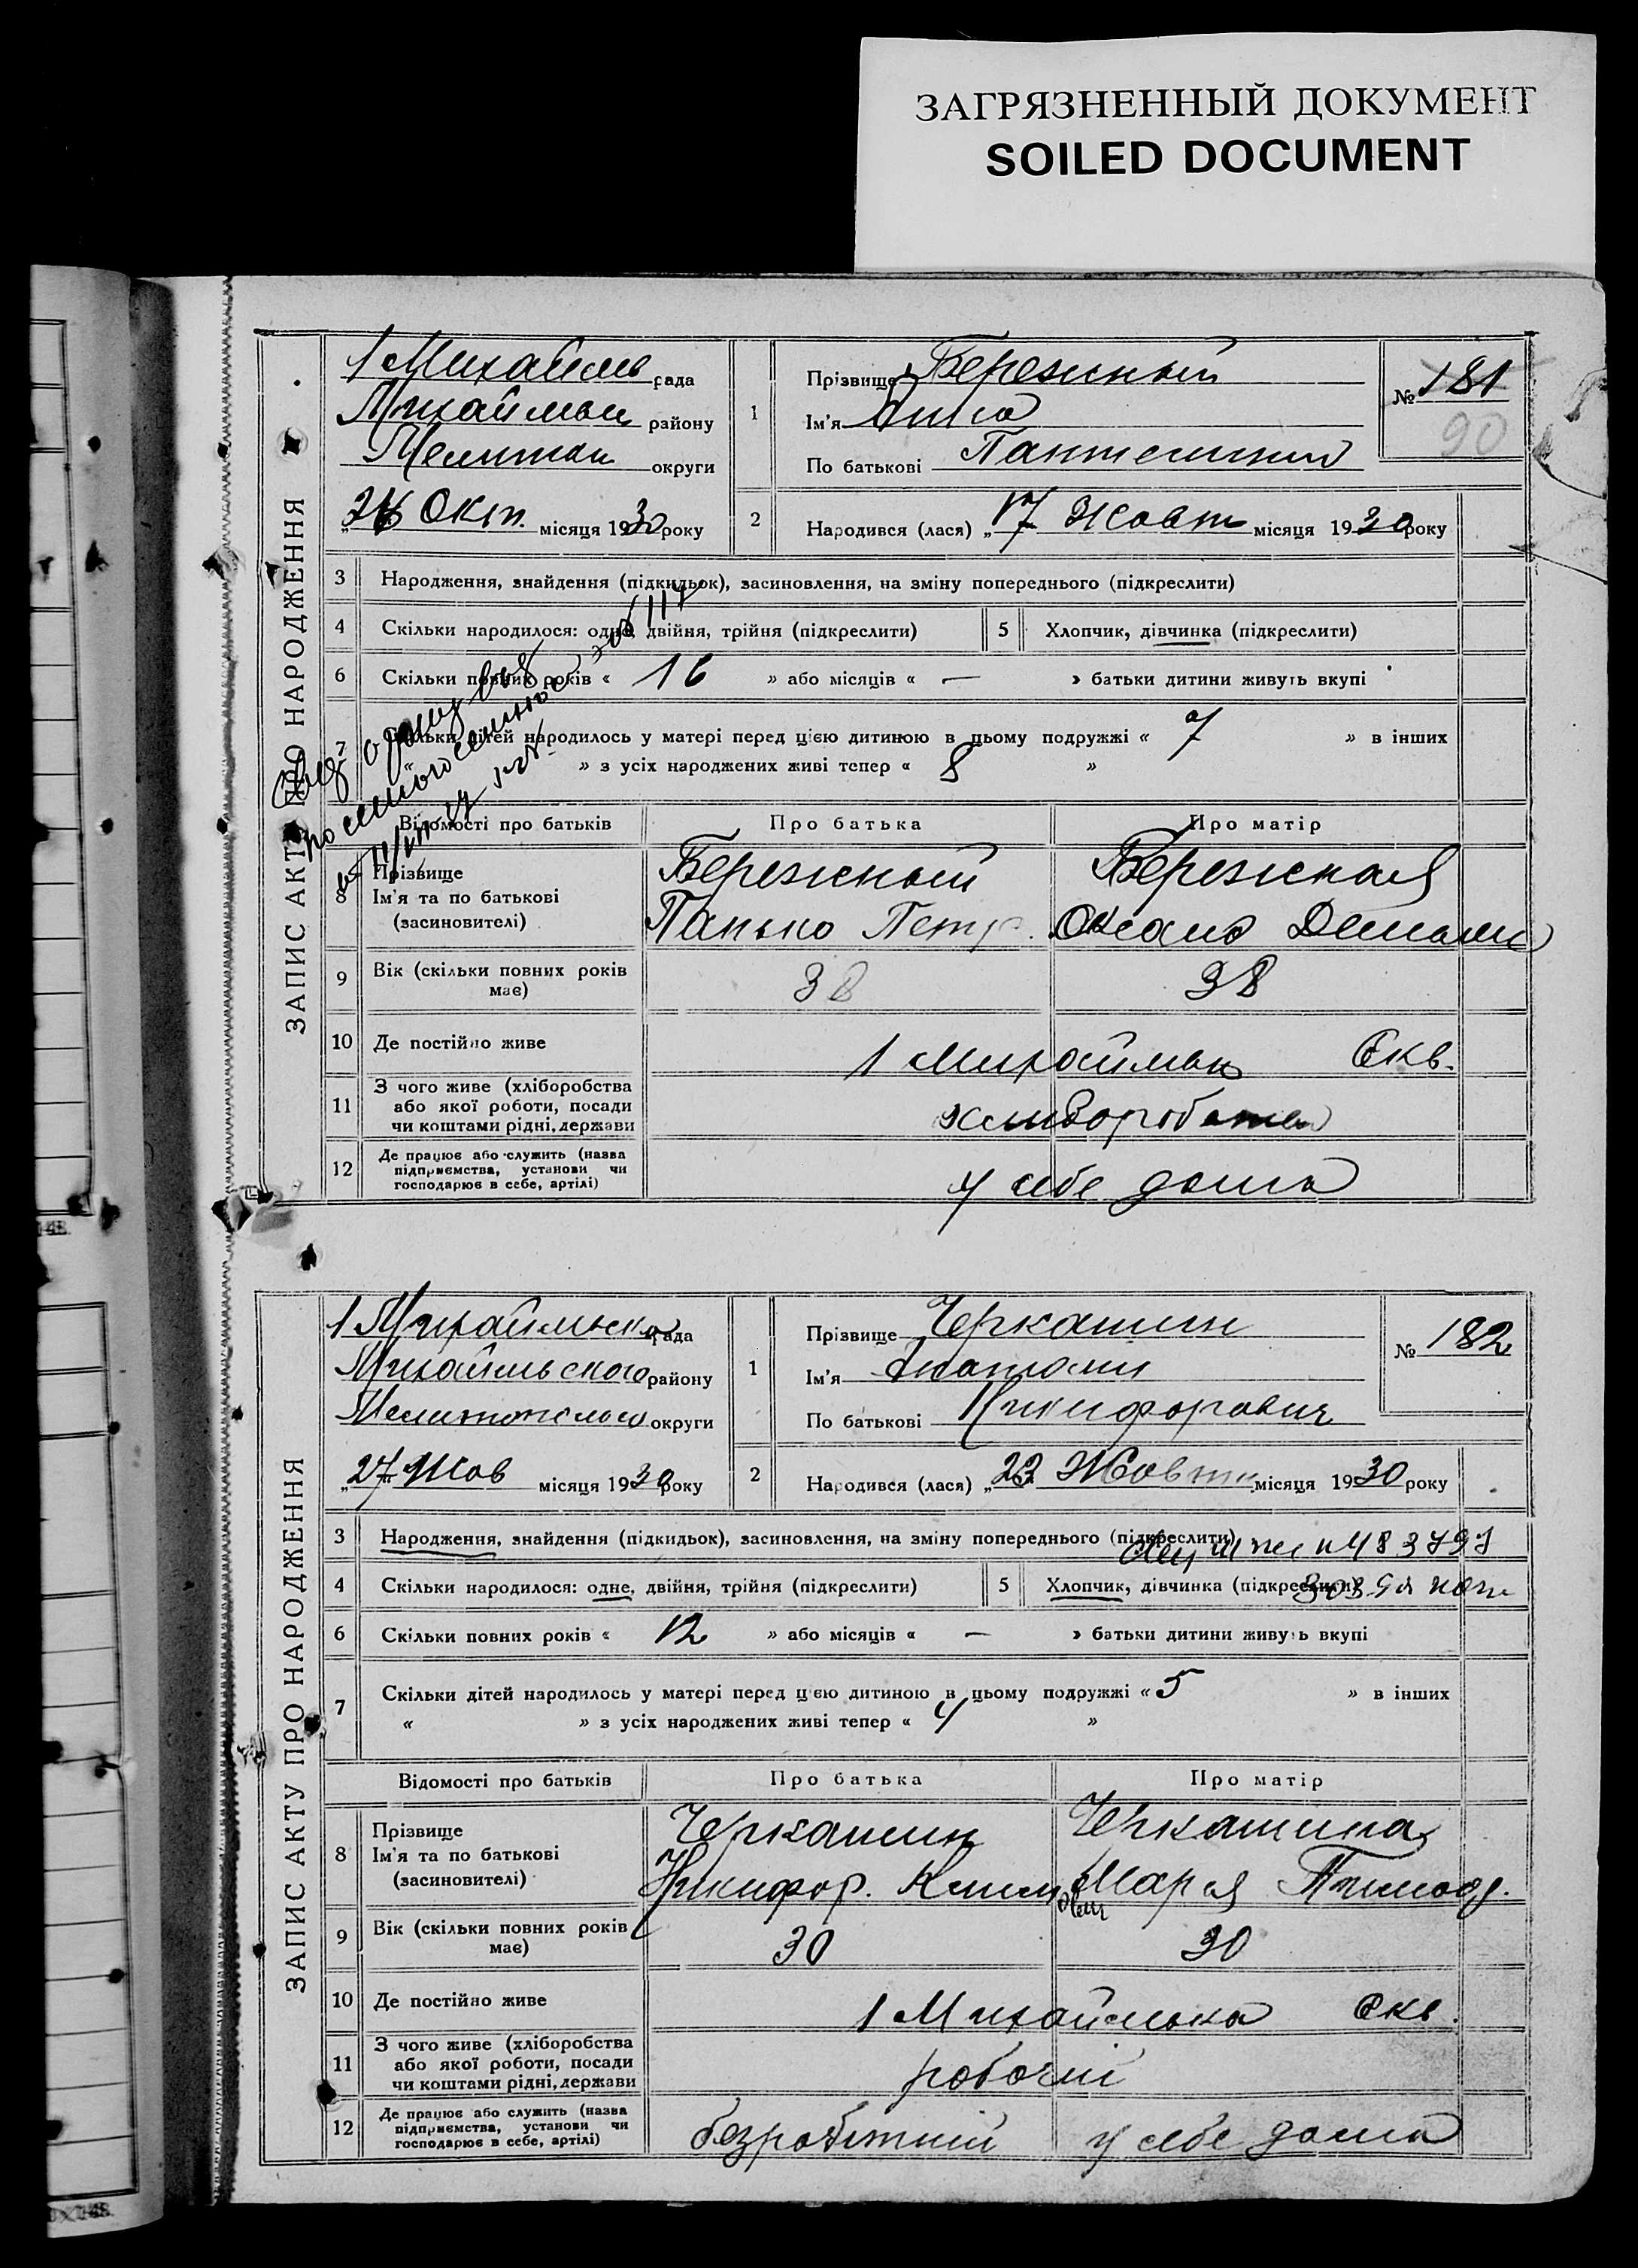 ЗАГРЯЗНЕННЫЙ ДОКУМЕНТ
SOILED DOCUMENT
ЗАПИС АКТУ ПРО НАРОДЖЕННЯ
1 Михайль рада
Михайльськ району
Мелитоп округи
"26 Окт. місяця 1930 року
1 Прізвище Бережный
Ім'я
По батькові
№ 181
90
2 Народився (лася) „17 Жовт місяця 1930 року
3 Народження, знайдення (підкидьок), засиновлення, на зміну попереднього (підкреслити)
4 Скільки народилося: одне, двійня, трійня (підкреслити)
5 Хлопчик, дівчинка (підкреслити)
6 Скільки повних років « 16 » або місяців « — » батьки дитини живуть вкупі
7 Скільки дітей народилось у матері перед цією дитиною в цьому подружжі « 7 » в інших
« » з усіх народжених живі тепер « 8 »
Відомості про батьків Про батька Про матір
8 Прізвище
Ім'я та по батькові
(засиновителі)
Бережный
Панько Петр.
Бережная
Оксана
9 Вік (скільки повних років має) 38 38
10 Де постійно живе 1 Михайлівка
11 З чого живе (хліборобства або якої роботи, посади чи коштами рідні, держави
12 Де працює або служить (назва підприємства, установи чи господарює в себе, артілі) у себе дома
ЗАПИС АКТУ ПРО НАРОДЖЕННЯ
1 Михайлівська рада
Михайльського району
Мелитопольськ округи
„27 Жов місяця 1930 року
1 Прізвище Черкашин
Ім'я Анатолий
По батькові Никифорович
№ 182
2 Народився (лася) „23 Жовтн місяця 1930 року
3 Народження, знайдення (підкидьок), засиновлення, на зміну попереднього (підкреслити)
4 Скільки народилося: одне, двійня, трійня (підкреслити)
5 Хлопчик, дівчинка (підкреслити)
6 Скільки повних років « 12 » або місяців « — » батьки дитини живуть вкупі
7 Скільки дітей народилось у матері перед цією дитиною в цьому подружжі « 5 » в інших
« » з усіх народжених живі тепер « 4 »
Відомості про батьків Про батька Про матір
8 Прізвище
Ім'я та по батькові
(засиновителі)
Черкашин
Никифор. Клим
Черкашина
Мария Тимоф.
9 Вік (скільки повних років має) 30 30
10 Де постійно живе 1 Михайлівка
11 З чого живе (хліборобства або якої роботи, посади чи коштами рідні, держави робочий
12 Де працює або служить (назва підприємства, установи чи господарює в себе, артілі) безробітний у себе дома